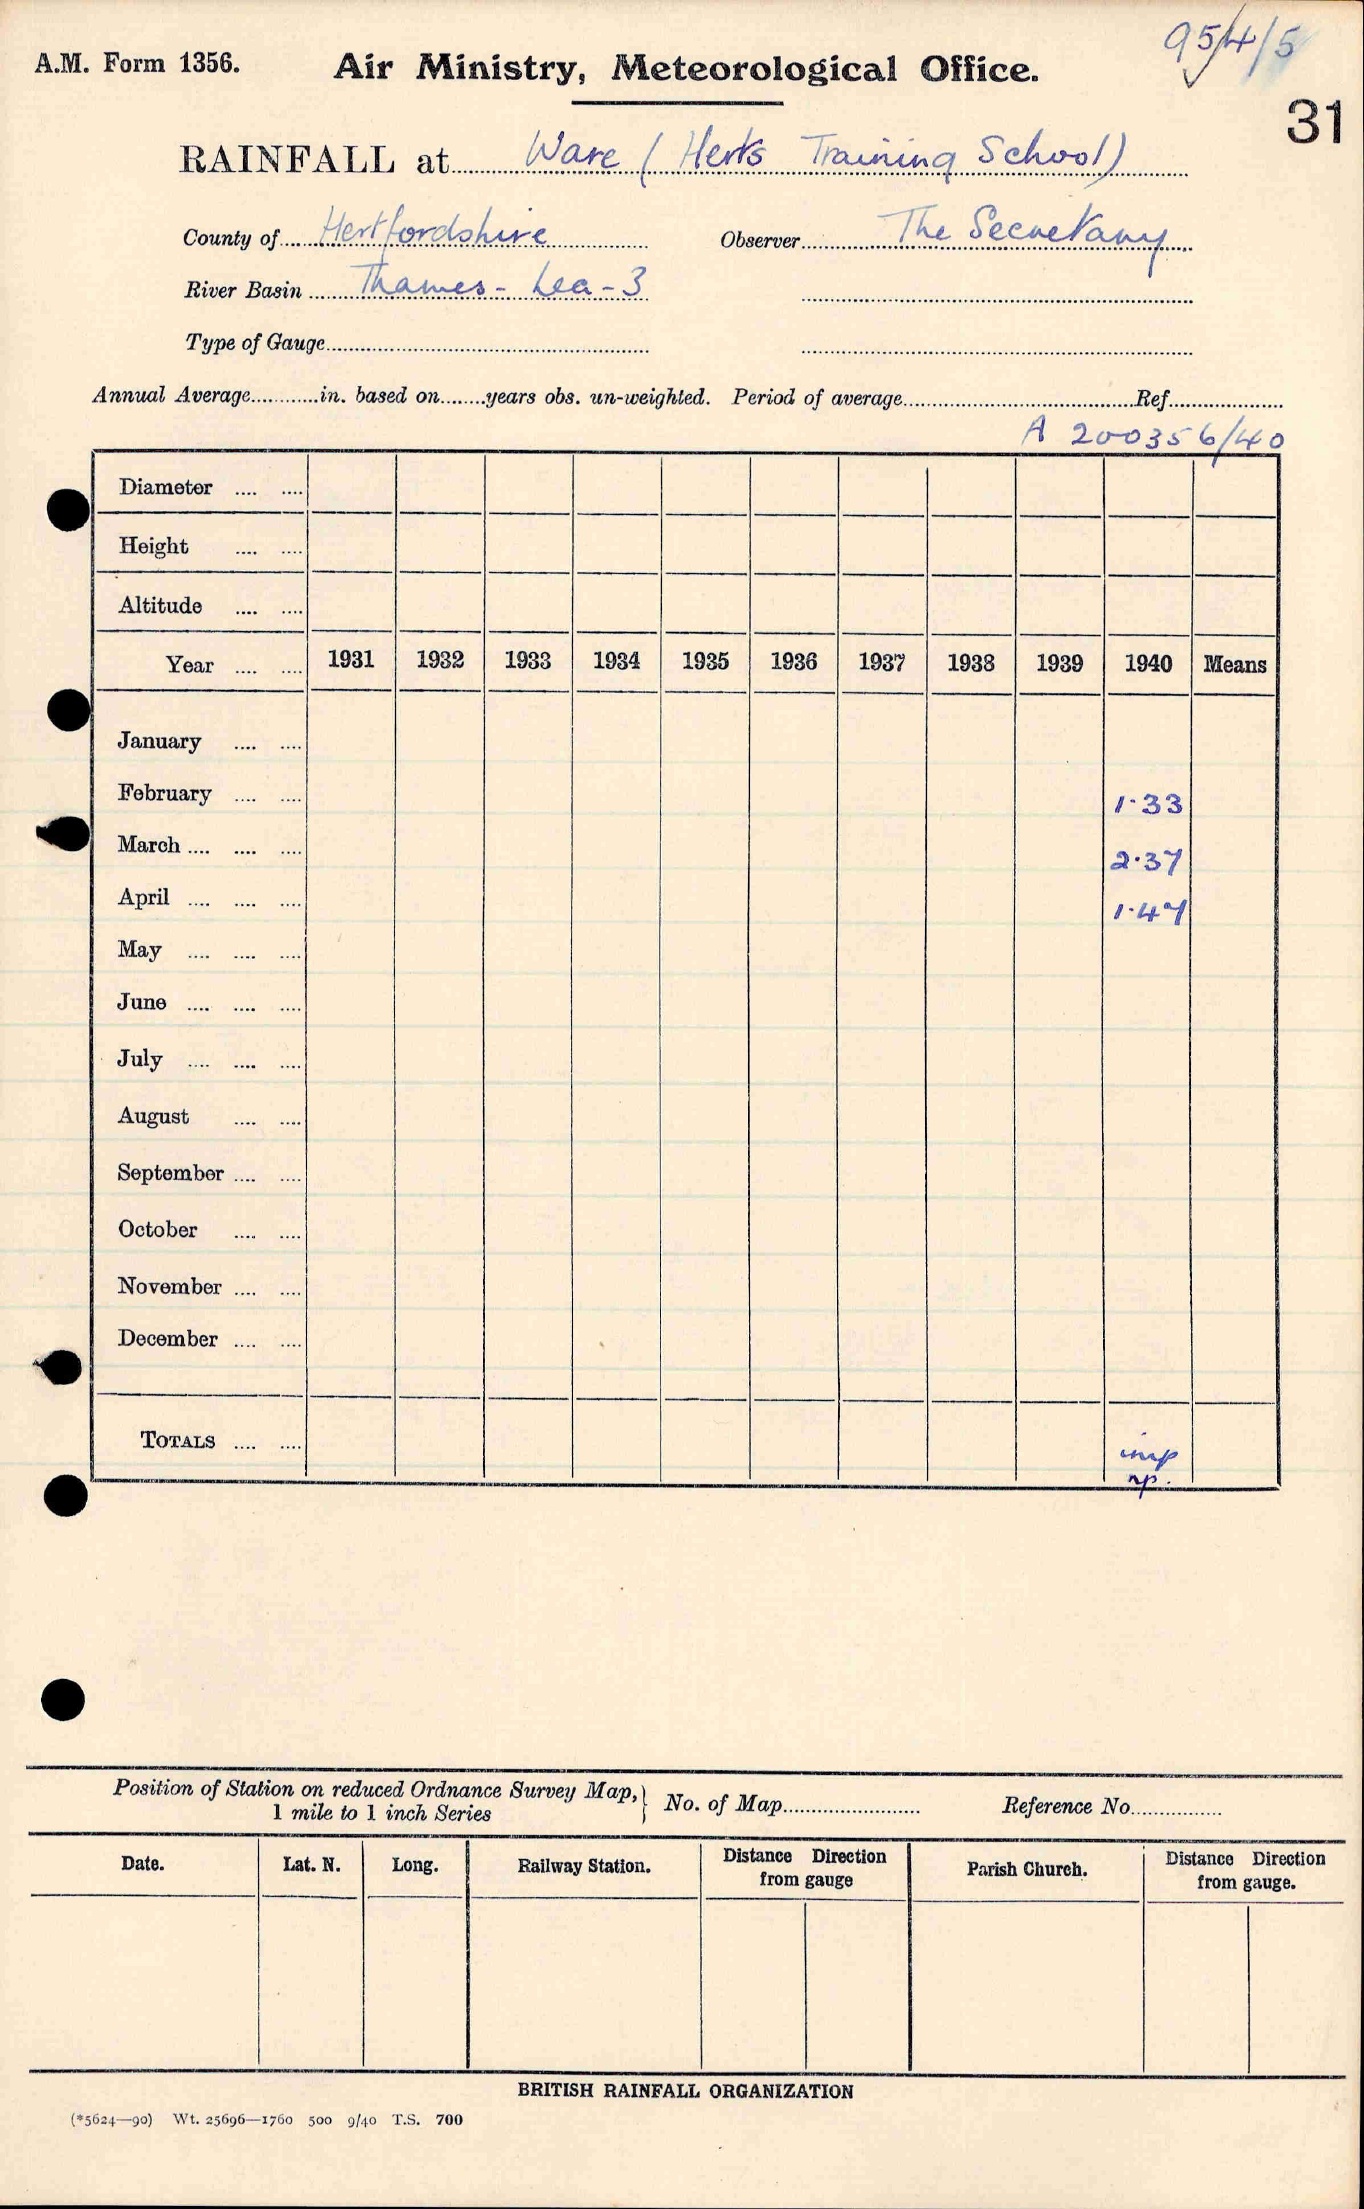 95/4/5
A.M. Form 1356. Air Ministry, Meteorological Office.
31
RAINFALL at Ware (Herts Training School)
County of Hertfordshire Observer The Secretary
River Basin Thames - Lea - 3
Type of Gauge
Annual Average in. based on years obs. un-weighted. Period of average Ref.
A 200356/40
Diameter
Height
Altitude
Year 1931 1932 1933 1934 1935 1936 1937 1938 1939 1940 Means
January
February 1.33
March 2.37
April 1.47
May
June
July
August
September
October
November
December
TOTALS imp
np.
Position of Station on reduced Ordnance Survey Map,
1 mile to 1 inch Series } No. of Map Reference No.
Date. Lat. N. Long. Railway Station. Distance Direction from gauge Parish Church. Distance Direction from gauge.
BRITISH RAINFALL ORGANIZATION
(*5624—90) Wt. 25696—1760 500 9/40 T.S. 700